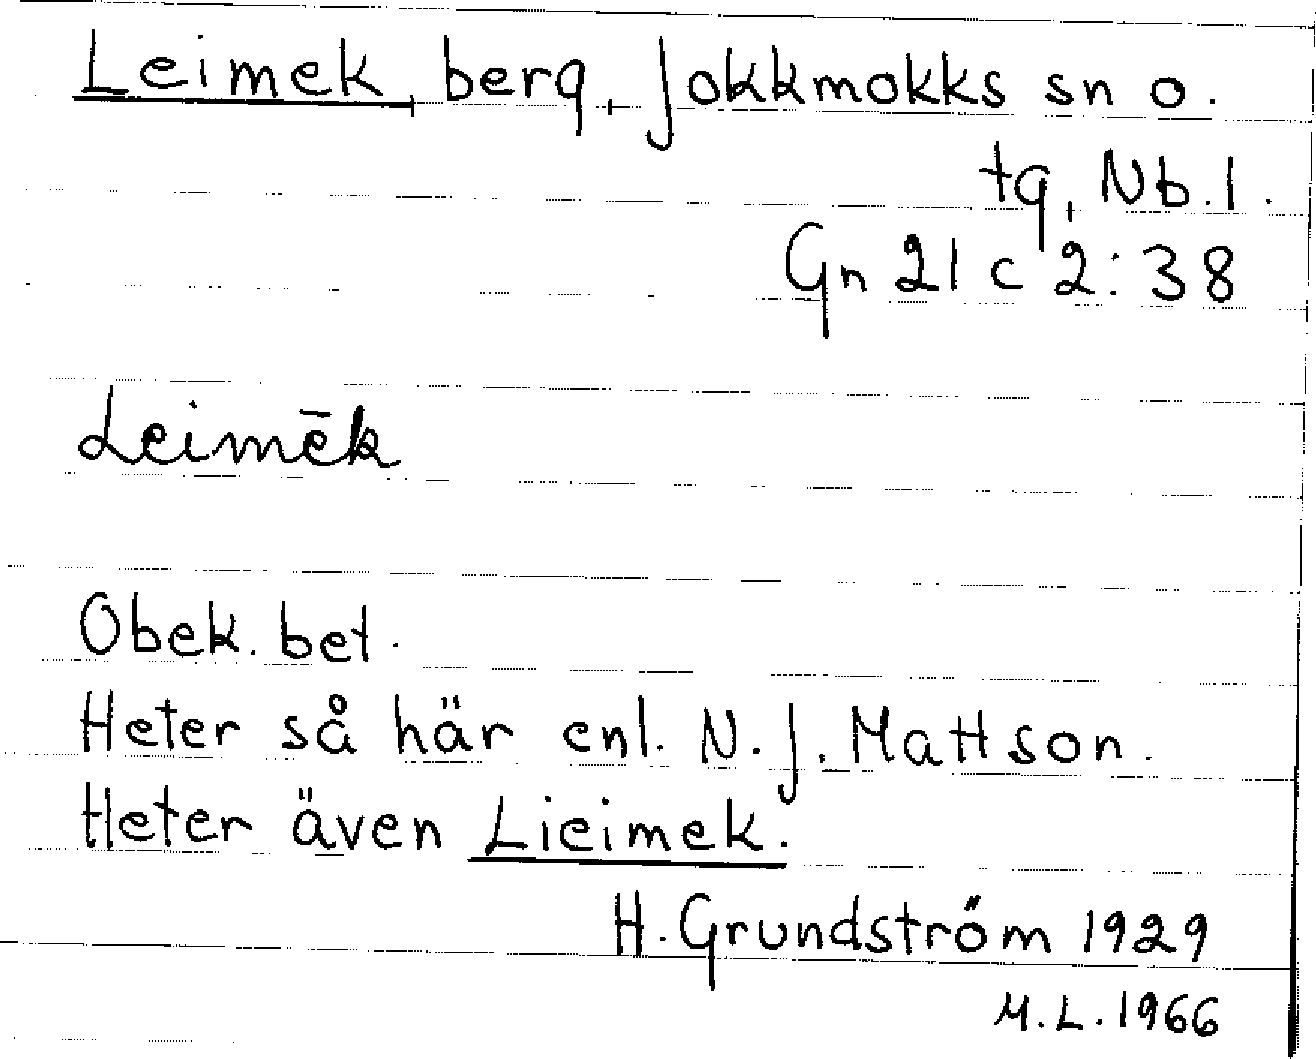 Leimek, berg, Jokkmokks sn o.
tg, Nb. l.
Gn 21 c 2:38
Leimēk
Obek. bet.
Heter så här enl. N. J. Mattson.
Heter även Lieimek.
H. Grundström 1929
M.L. 1966